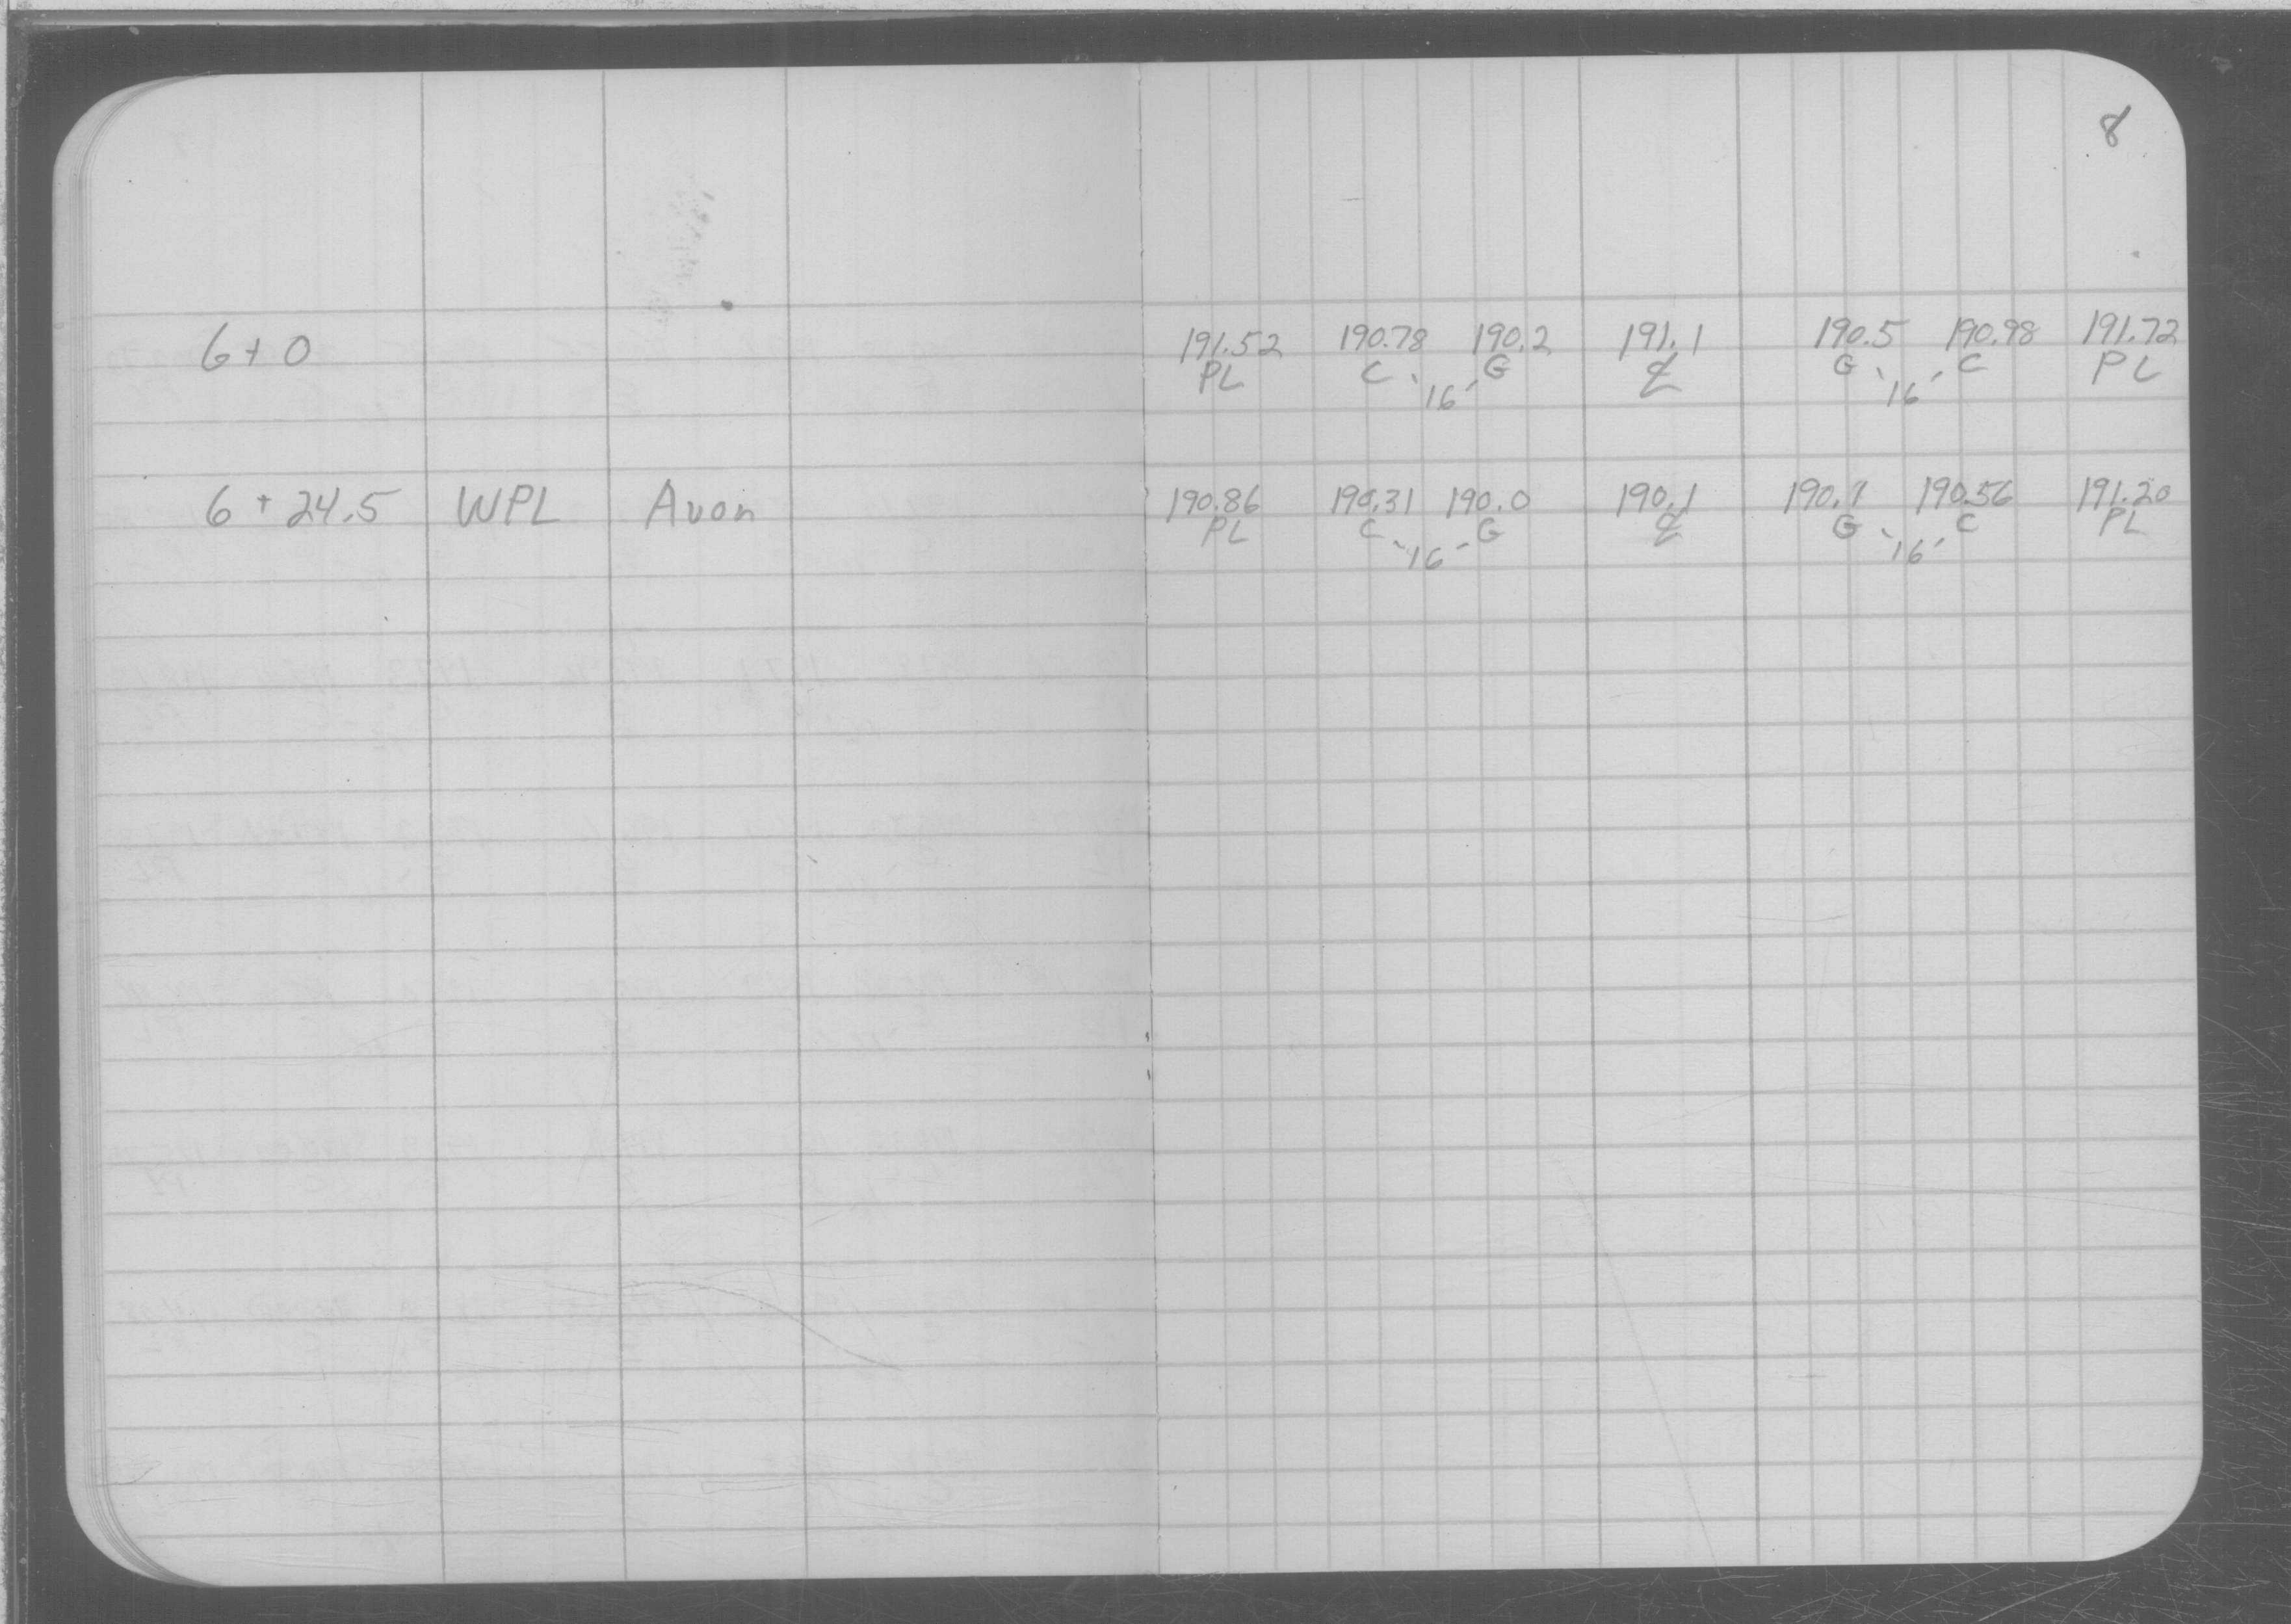 8
6+0 191.52 190.78 190.2 191.1 190.5 190.98 191.72
PL C G ℄ G C PL
16 16
6+24.5 WPL Avon 190.86 190.31 190.0 190.1 190.1 190.56 191.20
PL C G ℄ G C PL
16 16